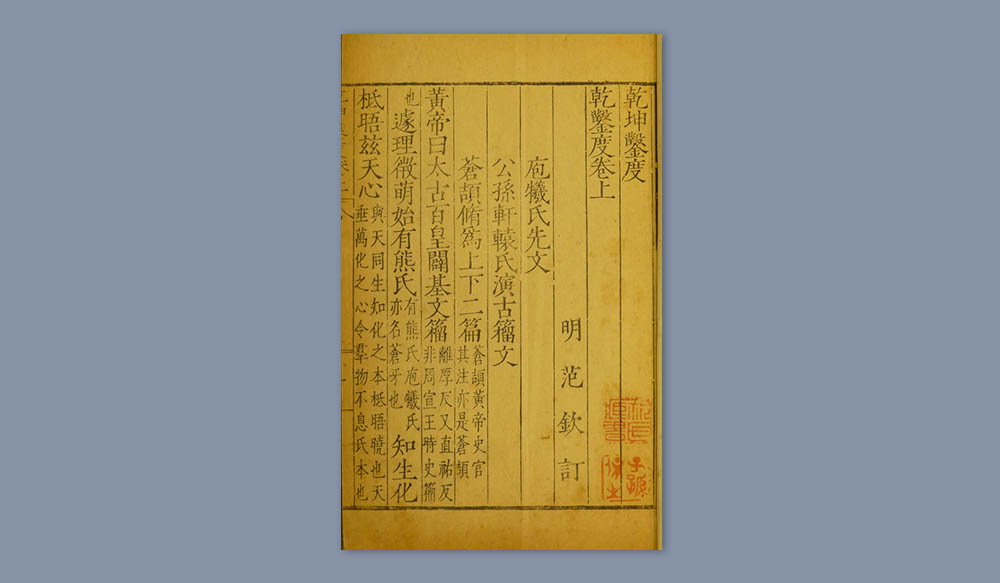 乾坤鑿度
乾鑿度卷上
明范欽訂
庖犧氏先文
公孫軒轅氏演古籒文
蒼頡脩為上下二篇蒼頡黃帝史官其注亦是蒼頡
黃帝曰太古百皇闢基文籒離厚反又直祐反非周宣王時史籒
也遽理微萌始有熊氏有熊氏庖犧氏亦名蒼牙也知生化
柢晤兹天心與天同生知化之本柢晤曉也天垂萬化之心令羣物不息氐本也